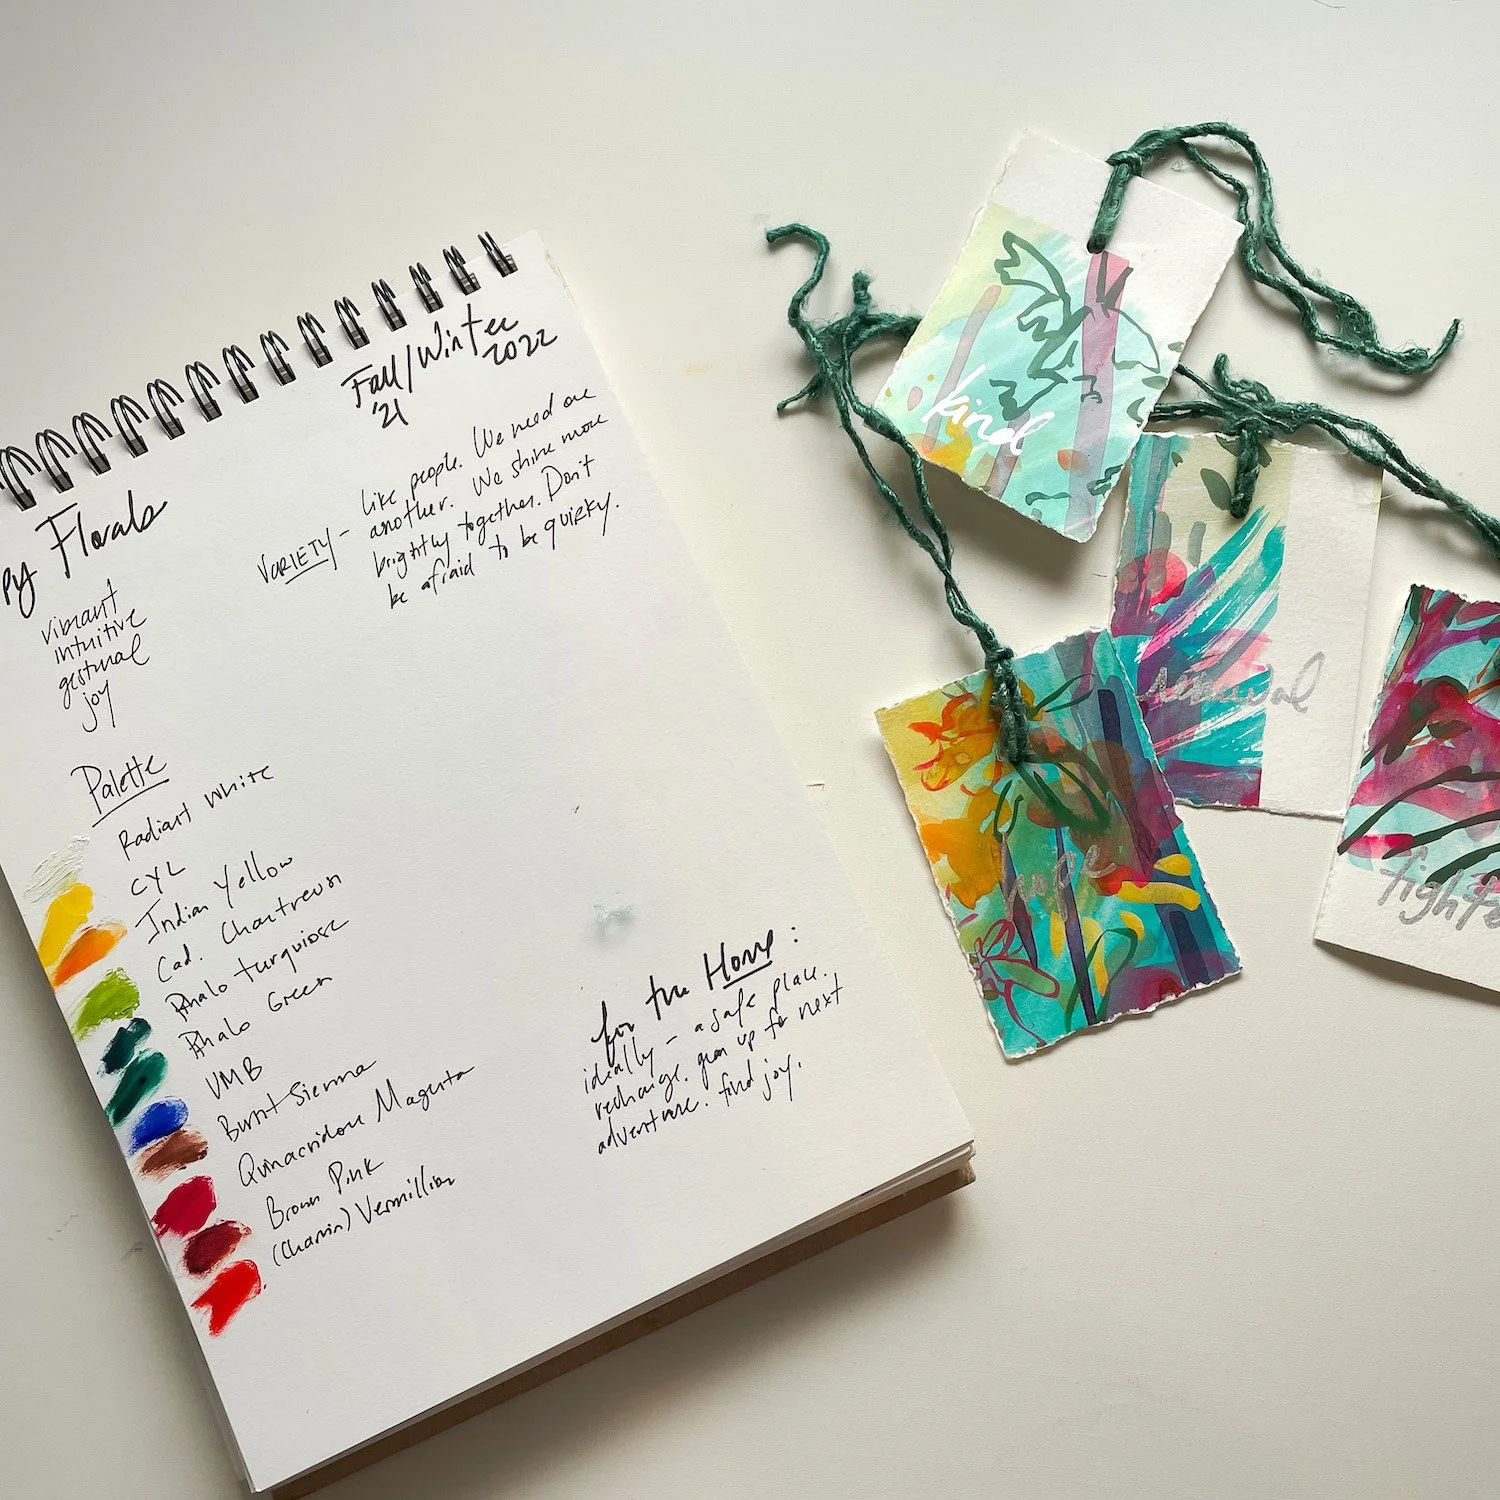 Fall/Winter
'21 2022
py Florals
vibrant
intuitive
gestural
joy
VARIETY - like people. We need one
another. We shine more
brightly together. Don't
be afraid to be quirky.
Palette
Radiant White
CYL
Indian Yellow
Cad. Chartreuse
Phalo turquoise
Phalo Green
UMB
Burnt Sienna
Quinacridone Magenta
Brown Pink
Vermillion
for the Home:
ideally - a safe place.
recharge. gear up for next
adventure. find joy.
kind
renewal
hope
fighte